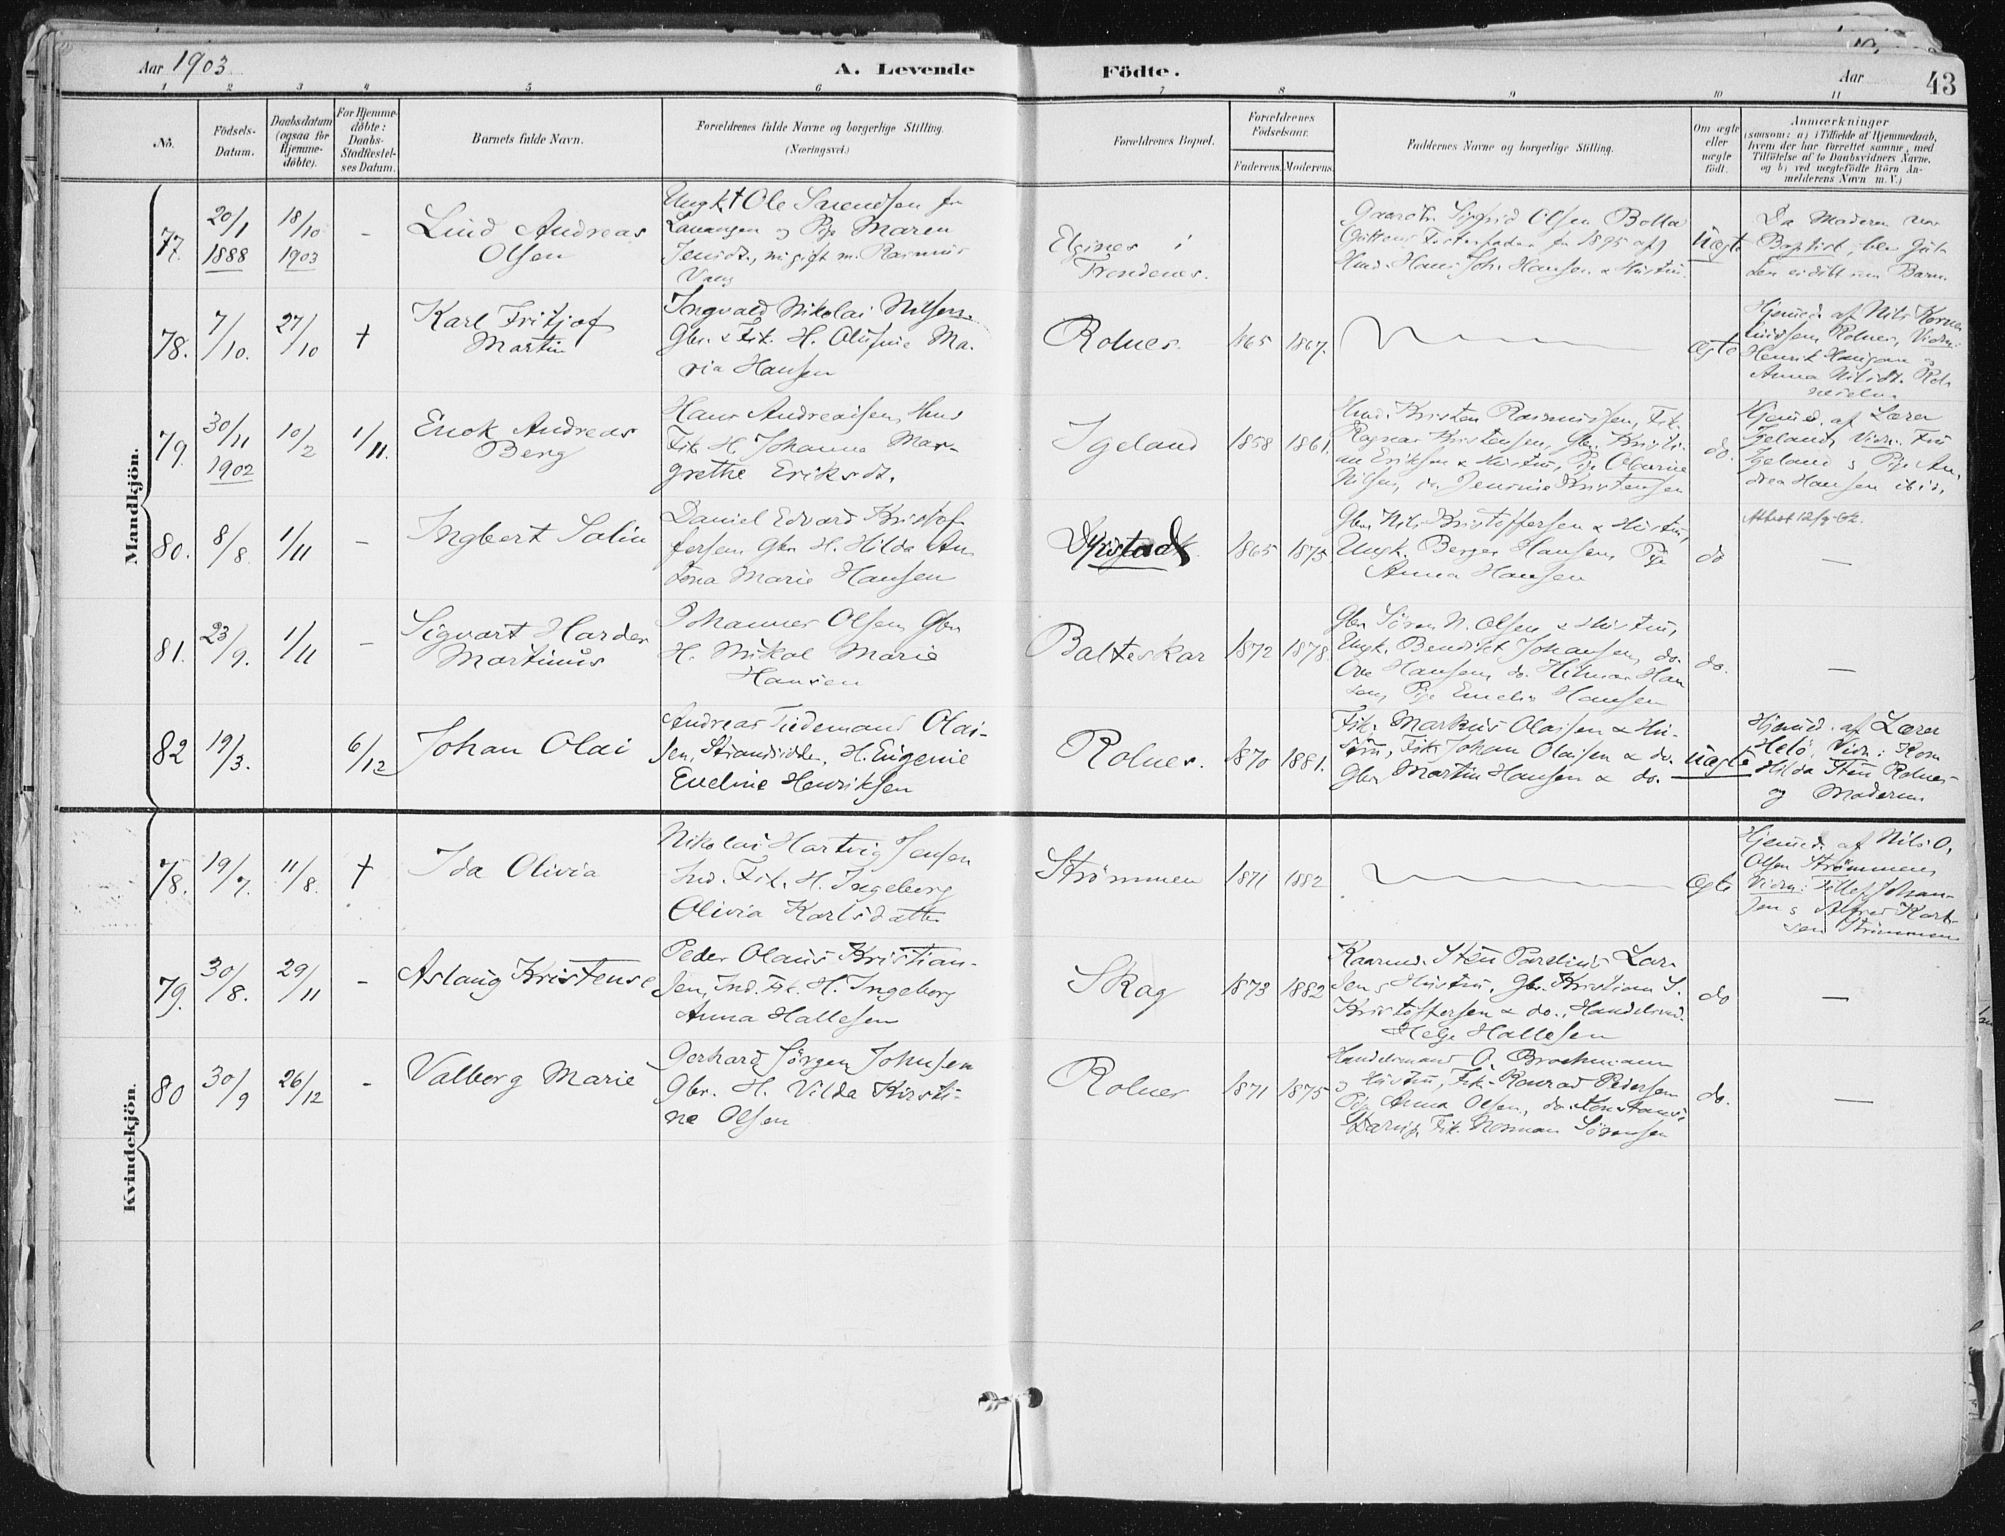 Aar 1903
A. Levende
Födte.
Aar
43
1 2 3 4 5 6 7 8 9 10 11
No.
Födsels-
Datum.
Daabsdatum
(ogsaa for
Hjemme-
döbte).
For Hjemme-
döbte:
Daabs-
Stadfæstel-
ses Datum.
Barnets fulde Navn.
Forældrenes fulde Navne og borgerlige Stilling.
(Næringsvei.)
Forældrenes Bopæl.
Forældrenes
Födselsaar.
Faderens. Moderens.
Faddernes Navne og borgerlige Stilling.
Om ægte
eller
uægte
födt.
Anmærkninger
(saasom: a) i Tilfælde af Hjemmedaab,
hvem der har forrettet samme, med
Tilföielse af to Daabsvidners Navne,
og b) ved uægtefödte Börn An-
melderens Navn m. V.)
Mandkjön.
77.
20/1
1888
18/10
1903
-
Lind Andreas
Olsen
Ungk. Ole Sørensen fra
Lavangen og Pige Maren
Jensdt., nu gift m. Rasmus
Vang
Elgsnes i
Trondenes.
Sigfrid Olsen Bolla
Hmd. Hans Joh. Hansen & Hustru.
Uægte
Da Moderen var
Baptist, blev
Barn.
78.
7/10.
27/10
+
Karl Fritjof
Martin
Ingvald Nikolai Nilsen
Gbr. & Fisk. H. Olufine Ma-
ria Hansen
Rolnes.
1865
1867.
ægte
Hjemmed. af Nils
Rolnes, Vidn:
Henrik Hansen og
Anna Nilsdt. Rol-
79.
30/11
1902
10/2
1/11.
Enok Andreas
Berg
Hans Andreassen, Hus
Fisk. H. Johanna Mar-
grethe Eriksdt.
Igeland
1858
1861.
Hmd. Kristen Rasmussen, Fisk.
Ragnar Kristensen, Gbr. Kristi-
an Eriksen & Hustru, Pige Olavine
Nilsen, do. Kristensen
do.
Hjemmed. af Lærer
Igeland, Vidn:
Igeland & Pige An-
drea Hansen ibid.
80.
8/8.
1/11
-
Ingbert Salin
Daniel Edvard Kristof-
fersen Gbr. H. Hilda An-
tona Marie Hansen
Dyrstad
1865
1875.
Gbr. Nils Kristoffersen & Hustru,
Ungk. Berger Hansen, Pige
Anna Hansen
do
Attest 12/9-02.
—
81.
23/9.
1/11
-
Sigvart Harder
Martinus
Johannes Olsen, Gbr
H. Nikol Marie
Hansen
Balteskar
1872
1878.
Gbr. Sören N. Olsen & Hustru,
Ungk. Benedikt Johansen, do.
Ove Hansen, do. Hilmar Han-
sen, Pige Emelie Hansen
do.
—
82
19/3.
6/12
Johan Olai
Andreas Tidemand Olai-
sen, Strandsidder, H. Eugenie
Eveline Henriksen
Rolnes.
1870
1881.
Fisk. Markus Olaisen & Hu-
stru, Fisk. Johan Olaisen & do.
Gbr. Martin Hansen & do.
uægte
Hjemmed. af Lærer
Vidn: Kone
Hilda Steen Rolnes
og Moderen
Kvindekjön.
78.
19/7.
11/8.
+
Ida Olivia
Nikolai Hartvig Jensen
Ind. Fisk. H. Ingeborg
Olivia Karlsdatter
Strømmen
1871
1882
ægte
Hjemmed. af Nils O.
Olsen Strömmen
Vidn: Johan-
sen & Alfred Karl-
sen Strömmen
79.
30/8.
29/11
-
Aslaug Kristense
Peder Olaus Kristian-
sen, Ind. Fisk. H. Ingeborg
Anna Hallesen
Skog
1873
1882
Kaarmd. Steen Paulinus Lar-
sen & Hustru, Gbr. Kristian S.
Kristoffersen & do., Handelsmd.
Helge Hallesen
do
—
80
30/9
26/12
-
Valborg Marie
Gerhard Jörgen Johnsen
Gbr. H. Vilda Kirsti-
ne Olsen
Rolnes
1871
1875
Handelsmand O. Brochmann
& Hustru, Fisk. Konrad Pedersen
Pige Anna Olsen, do. Konstance
Fisk. Norman Sörensen
do.
—